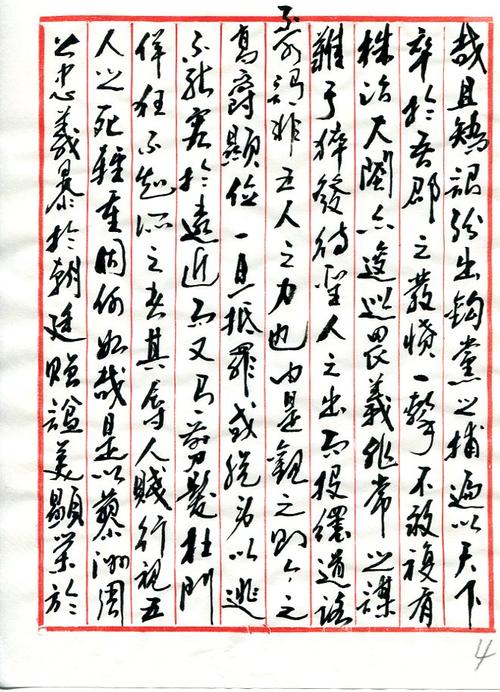 哉且矯詔紛出鈎黨之捕遍以天下
卒於吾郡之發憤一擊不敢複有
株治大閹亦逡巡畏義非常之謀
難于猝發待聖人之出而投繯道路
不可謂非五人之力也由是觀之則今之
高爵顯位一旦抵罪或脫身以逃
不能容於遠近而又有剪髮杜門
佯狂不知所之者其辱人賤行視五
人之死輕重固何如哉是以蓼洲周
公忠義暴於朝廷贈諡美顯榮於
4